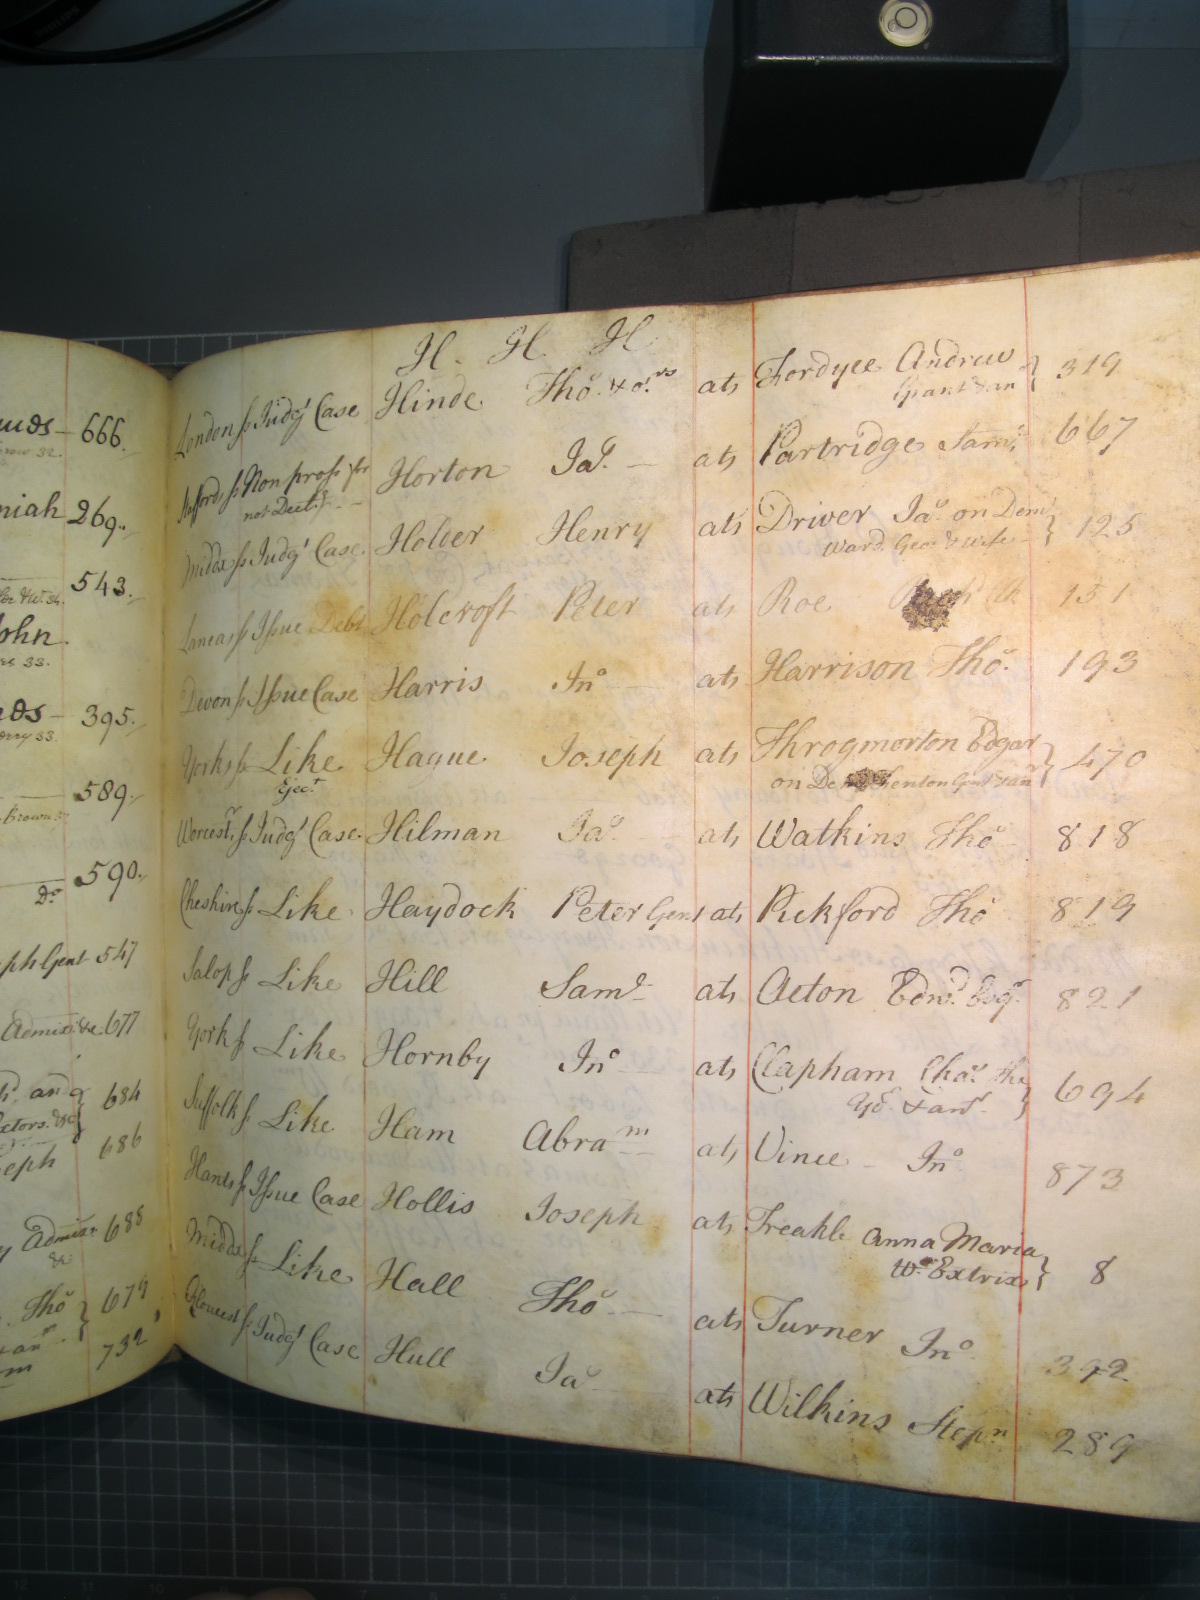 666.
niah 269..
543.
ohn.
395.
589.
590.
Do
ph Gent 547
Admix. &c. 677
and
684
686
eph
Admix. 688
&c.
Tho 679
732
H. H. H
London ss Judgt Case Hinde. Tho. & ors. ats Fordyce Andrew 319
Gent & an
Staffords ss Non pross for Horton Jas. ats Partridge Saml. 667
not Declg.
Middx ss Judgt Case. Holder Henry ats Driver Jas. on Dem 125
Ward. Geo. & Wife
Lancas ss Issue Debt Holcroft Peter ats Roe 131
Devon ss Issue Case Harris Jno ats Harrison Tho. 193
Yorks ss Like. Hague Joseph ats Throgmorton Edgar 470
Eject on Dem Gent & an
Worcestr. ss Judgt Case. Hilman Jas. ats Watkins Tho 818
Cheshire ss Like Haydock Peter Gent ats Pickford Tho 819
Salop ss Like Hill Saml ats Acton Edwd. Esqr. 821
York ss Like Hornby Jno ats Clapham Chas. the 694
Yo. & anr.
Suffolk ss Like Ham Abram ats Vince Jno. 873
Hants ss Issue Case Hollis Joseph ats Treakle Anna Maria 8
Wo. Extrix
Middx ss Like Hall Tho ats Turner Jno. 392
Gloucest ss Judgt Case Hull Jas ats Wilkins Stepn 289